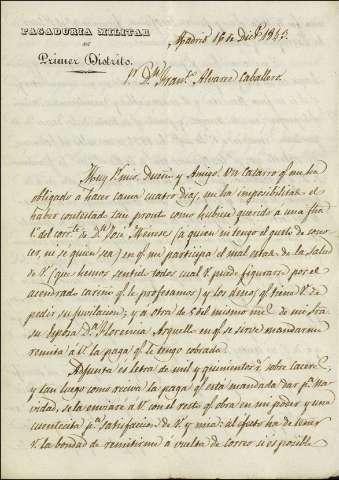 PAGADURIA MILITAR
DE
Primer Distrito.
Madrid 16 de Dicᵉ 1843.
Sʳ Dⁿ Franᶜᵒ Alvarez Caballero.
Muy Sʳ mio, Dueño y Amigo. Un catarro qᵉ me ha
obligado a hacer cama cuatro dias, me ha imposibilitado el
haber contestado tan pronto como hubiera querido a una fha
del corrᵗᵉ de Dⁿ José Menese (a quien ni tengo el gusto de cono-
cer, ni se quien sea) en qᵉ me participa el mal estado de la salud
de V. (que hemos sentido todos cual V. puede figurarse por el
acendrado cariño qᵉ le profesamos) y los deseos qᵉ tiene V. de
pedir su jubilacion; y a otra de 5 del mismo mes de mi Sra
su esposa Dª Florencia Arguelle en qᵉ se sirve mandarme
remita a V. la paga qᵉ le tengo cobrada.
Adjunta es letra de mil y quinientos rˢ sobre Caceres,
y tan luego como reciva la paga qᵉ está mandada dar pʳ Na-
vidad, se la enviaré a V. con el resto qᵉ obra en mi poder y una
cuentecita pᵃ satisfaccion de V. y mia: al efecto ha de tener
V. la bondad de remitirme a vuelta de correo si es posible